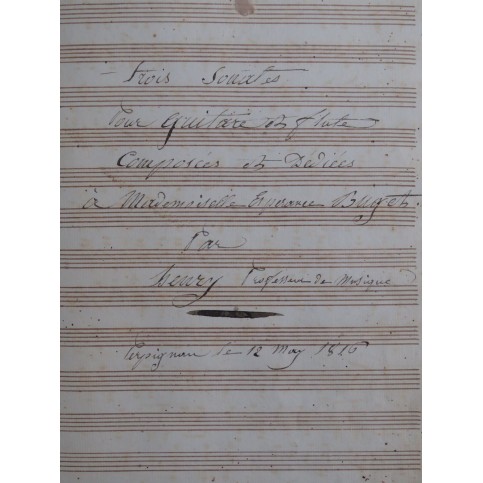 Trois Sonates
Pour Guitare et flute
Composées et Dédiées
à Mademoiselle Esperance Puget
Par
henry Professeur de Musique
Perpignan le 12 may 1816